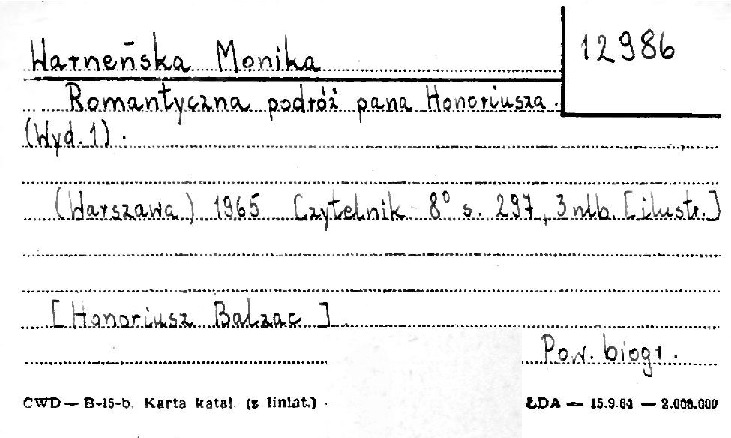 Warneńska Monika
12986
Romantyczna podróż pana Honoriusza.
(Wyd. 1).
(Warszawa) 1965 Czytelnik 8° s. 297, 3 nlb. [ilustr.]
[Honoriusz Balzac]
Pow. biogr.
CWD — B-15-b. Karta katal. (z liniat.)
ŁDA — 15.9.64 — 2.000.000